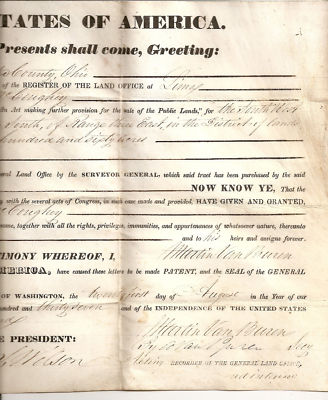 TATES OF AMERICA.
Presents shall come, Greeting:
County, Ohio
of the REGISTER OF THE LAND OFFICE at Lima
Coughey
An Act making further provision for the sale of the Public Lands," for the North West
South, of Range one East, in the District of lands
hundred and sixty acres
eral Land Office by the SURVEYOR GENERAL, which said tract has been purchased by the said
NOW KNOW YE, That the
ity with the several acts of Congress, in such case made and provided, HAVE GIVEN AND GRANTED,
Coughey
ame, together with all the rights, privileges, immunities, and appurtenances of whatsoever nature, thereunto
and to his heirs and assigns forever.
IMONY WHEREOF, I, Martin Van Buren
MERICA, have caused these letters to be made PATENT, and the SEAL of the GENERAL
OF WASHINGTON, the twenty first day of August in the Year of our
hundred and thirty seven and of the INDEPENDENCE OF THE UNITED STATES
E PRESIDENT: Martin Van Buren
By Van Buren Secy
Wilson
acting RECORDER OF THE GENERAL LAND OFFICE,
ad interim